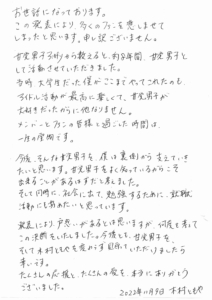 お世話になっております。
この発表により、多くのファンを悲しませて
しまったと思います。申し訳ございません。
甘党男子3期から数えると、約8年間、甘党男子とし
て活動させていただきました。
当時大学生だった僕がここまでやってこれたのも、
アイドル活動が最高に楽しくて、甘党男子が
大好きだったからに他なりません。
メンバーとファンの皆様と過ごした時間は
一生の宝物です。
今後、そんな甘党男子を、僕は裏側から支えていき
たいと思います。甘党男子をよく知っているからこそ
出来ることがあるはずだと考えました。
そして同時に、社会に出て、勉強するために、就職
活動にもあたりたいと思っています。
発表により、戸惑いがあるとは思いますが、何度も考えて
この決断をいたしました。今後とも、甘党男子を、
そして木村ともやを変わらず目守っていただけましたら
幸いです。
たくさんの応援と、たくさんの愛を、本当にありがとう
ございました。
2022年11月9日 木村ともや